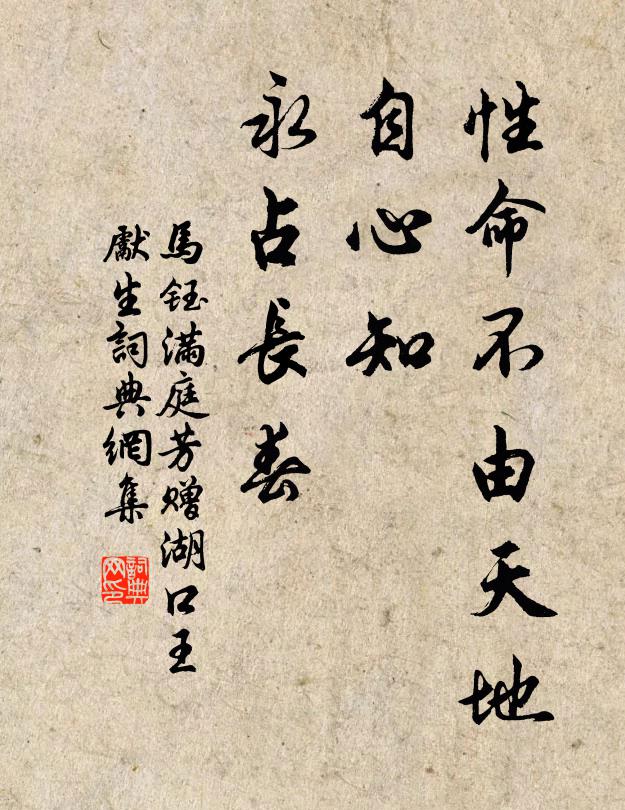 性命不由天地
自心知
永占長春
馬鈺滿庭芳贈湖口王
獻生詞典網集
詞典
网印